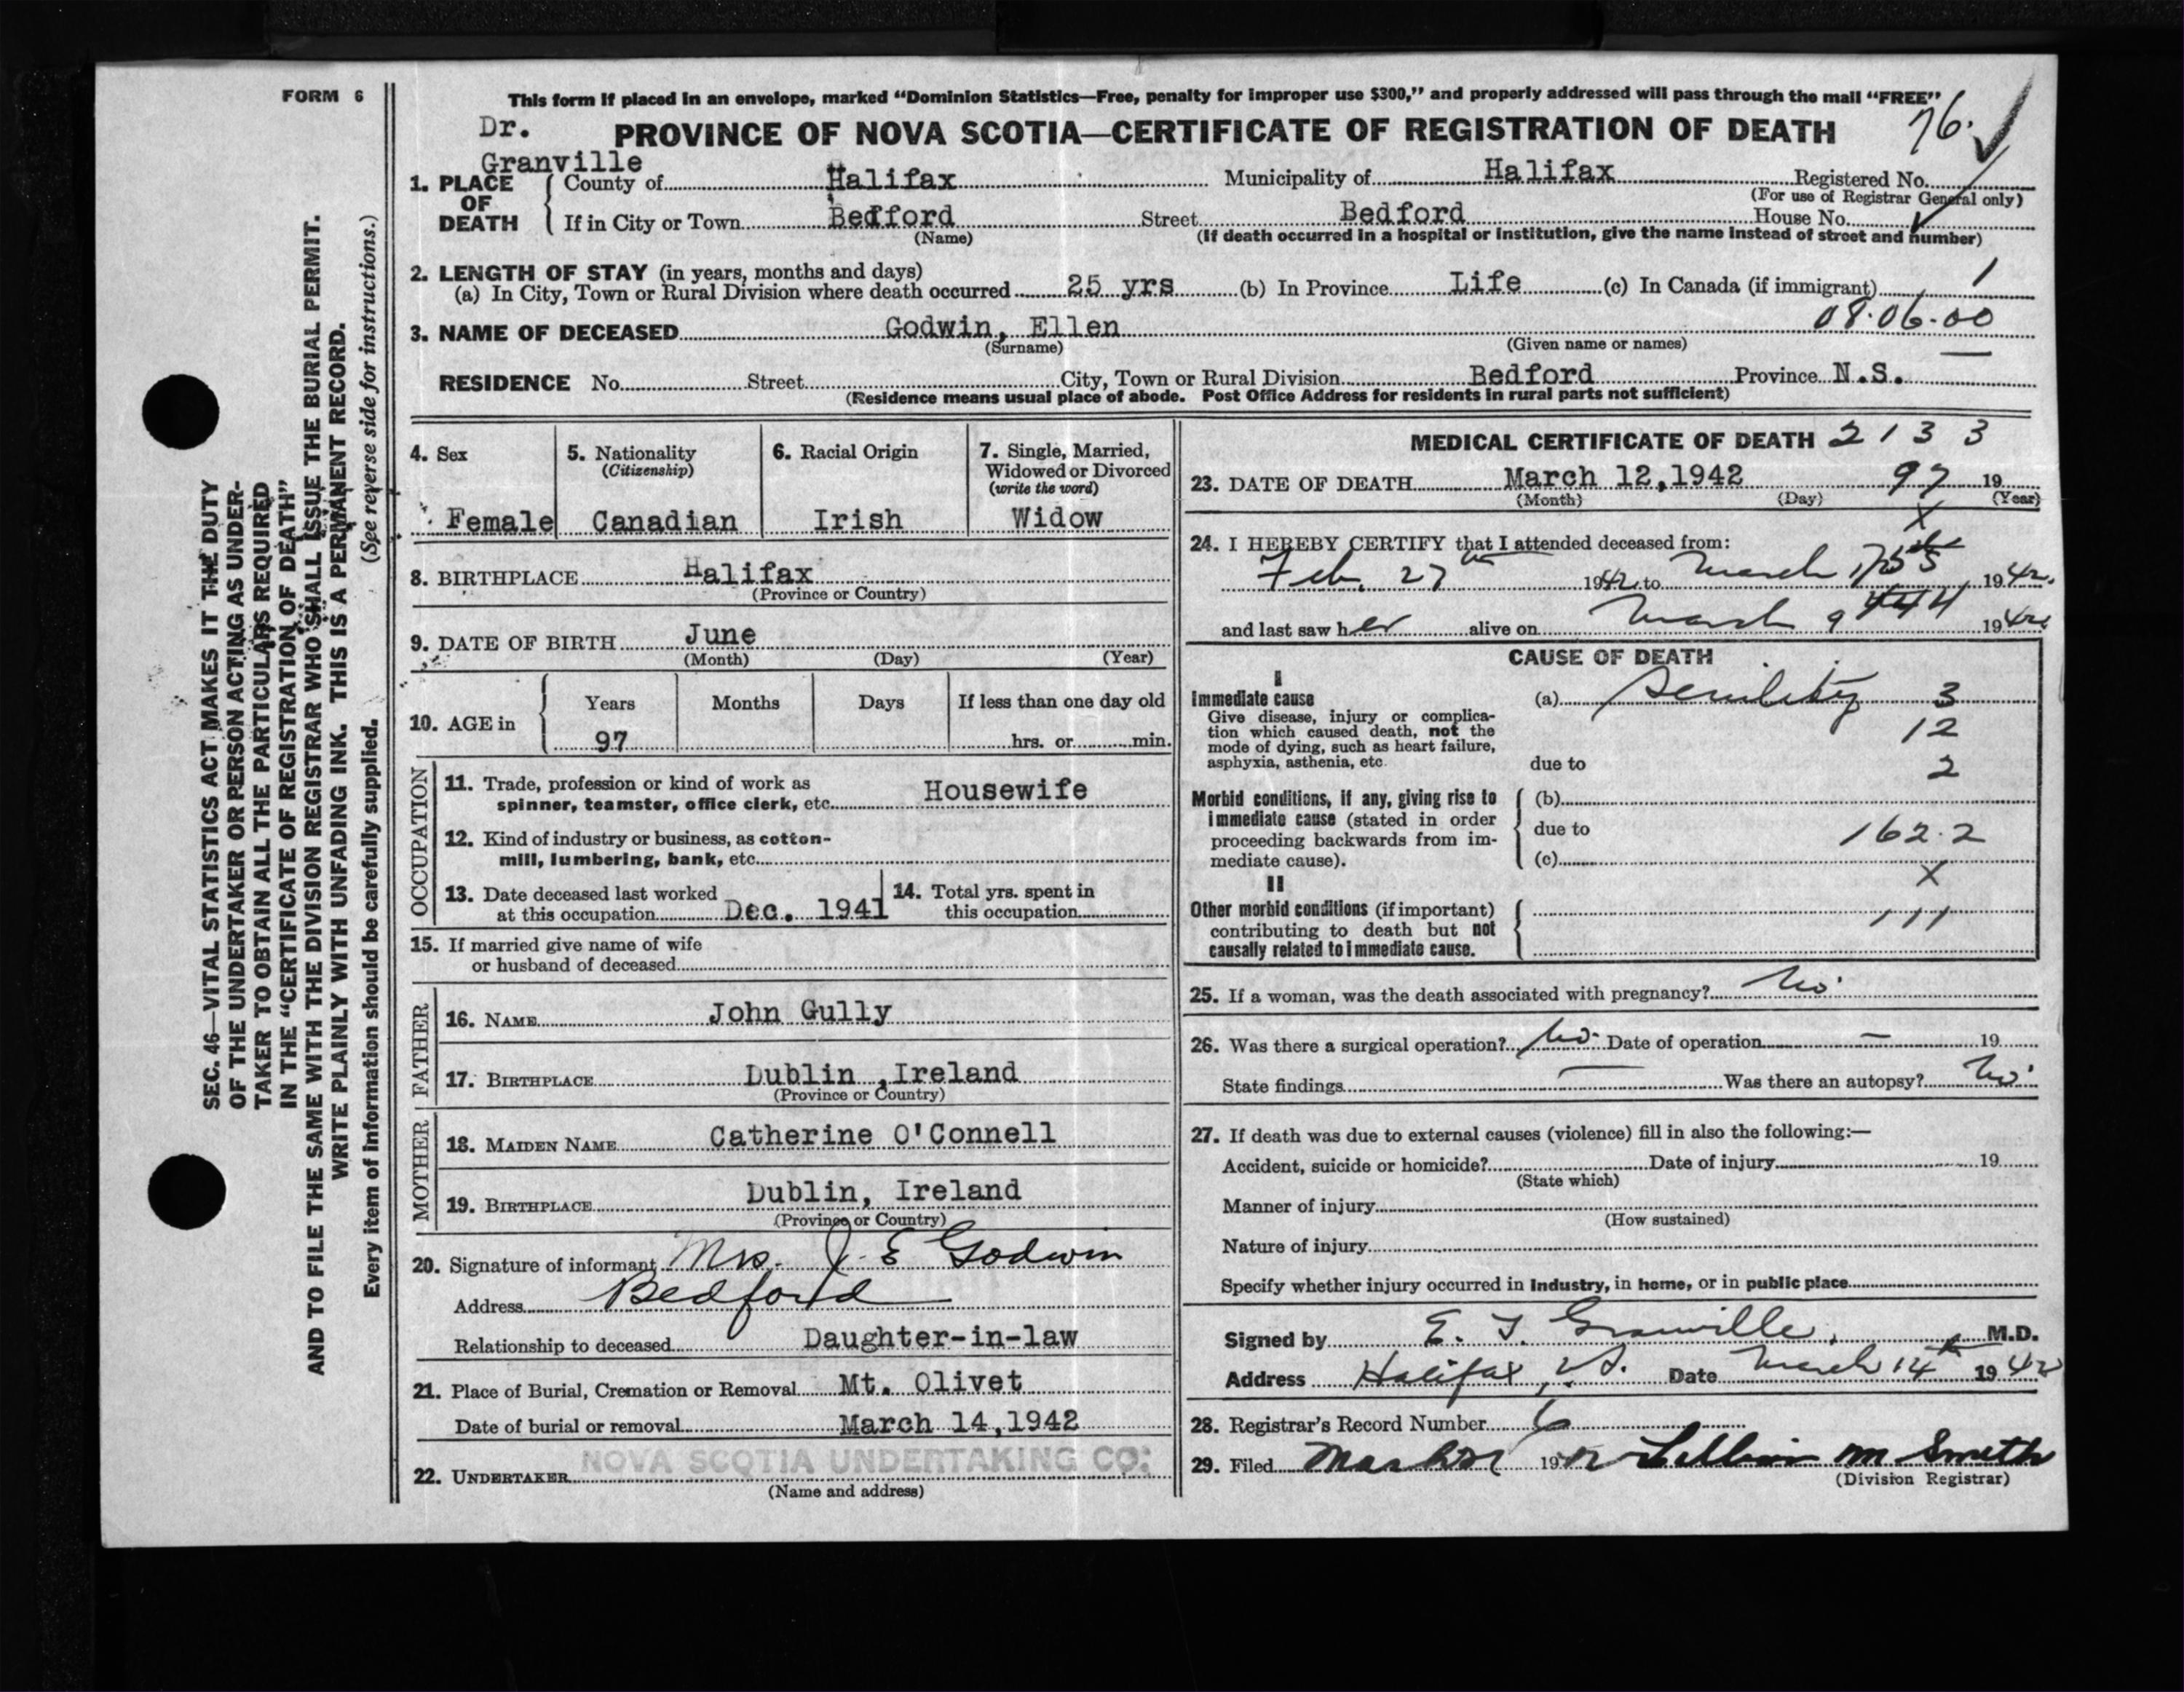 FORM 6
This form if placed in an envelope, marked “Dominion Statistics—Free, penalty for improper use $300,” and properly addressed will pass through the mail “FREE”
76.
Dr. Granville
PROVINCE OF NOVA SCOTIA—CERTIFICATE OF REGISTRATION OF DEATH
1. PLACE OF DEATH
County of Halifax Municipality of Halifax Registered No.
(For use of Registrar General only)
If in City or Town Bedford Street Bedford House No.
(Name) (If death occurred in a hospital or institution, give the name instead of street and number)
2. LENGTH OF STAY (in years, months and days)
(a) In City, Town or Rural Division where death occurred 25 yrs (b) In Province Life (c) In Canada (if immigrant) 1
08.06.00
3. NAME OF DECEASED Godwin, Ellen
(Surname) (Given name or names)
RESIDENCE No. Street City, Town or Rural Division Bedford Province N.S.
(Residence means usual place of abode. Post Office Address for residents in rural parts not sufficient)
4. Sex
Female
5. Nationality
(Citizenship)
Canadian
6. Racial Origin
Irish
7. Single, Married,
Widowed or Divorced
(write the word)
Widow
8. BIRTHPLACE Halifax
(Province or Country)
9. DATE OF BIRTH June
(Month) (Day) (Year)
10. AGE in
Years Months Days If less than one day old
97 hrs. or min.
OCCUPATION
11. Trade, profession or kind of work as
spinner, teamster, office clerk, etc. Housewife
12. Kind of industry or business, as cotton-
mill, lumbering, bank, etc.
13. Date deceased last worked
at this occupation Dec. 1941
14. Total yrs. spent in
this occupation
15. If married give name of wife
or husband of deceased
FATHER
16. NAME John Gully
17. BIRTHPLACE Dublin ,Ireland
(Province or Country)
MOTHER
18. MAIDEN NAME Catherine O'Connell
19. BIRTHPLACE Dublin, Ireland
(Province or Country)
20. Signature of informant Mrs. J. E Godwin
Address Bedford
Relationship to deceased Daughter-in-law
21. Place of Burial, Cremation or Removal Mt. Olivet
Date of burial or removal March 14,1942
22. UNDERTAKER NOVA SCOTIA UNDERTAKING CO:
(Name and address)
MEDICAL CERTIFICATE OF DEATH 2133
23. DATE OF DEATH March 12,1942 97 19
(Month) (Day) (Year)
X
24. I HEREBY CERTIFY that I attended deceased from:
Feb. 27th 1942 to March 1942
and last saw her alive on March 9 444 1942
CAUSE OF DEATH
I
Immediate cause
Give disease, injury or complica-
tion which caused death, not the
mode of dying, such as heart failure,
asphyxia, asthenia, etc.
(a) Senility 3
12
due to 2
Morbid conditions, if any, giving rise to
immediate cause (stated in order
proceeding backwards from im-
mediate cause).
(b)
due to 162.2
(c)
X
II
Other morbid conditions (if important)
contributing to death but not
causally related to immediate cause.
111
25. If a woman, was the death associated with pregnancy? No.
26. Was there a surgical operation? No. Date of operation — 19
State findings — Was there an autopsy? No.
27. If death was due to external causes (violence) fill in also the following:—
Accident, suicide or homicide? Date of injury 19
(State which)
Manner of injury
(How sustained)
Nature of injury
Specify whether injury occurred in industry, in home, or in public place
Signed by E. J. Granville. M.D.
Address Halifax, N.S. Date March 14th 1942
28. Registrar's Record Number 6
29. Filed 19 Lillian M Smith
(Division Registrar)
SEC. 46—VITAL STATISTICS ACT MAKES IT THE DUTY
OF THE UNDERTAKER OR PERSON ACTING AS UNDER-
TAKER TO OBTAIN ALL THE PARTICULARS REQUIRED
IN THE “CERTIFICATE OF REGISTRATION OF DEATH”
AND TO FILE THE SAME WITH THE DIVISION REGISTRAR WHO SHALL ISSUE THE BURIAL PERMIT.
WRITE PLAINLY WITH UNFADING INK. THIS IS A PERMANENT RECORD.
(See reverse side for instructions.)
Every item of information should be carefully supplied.